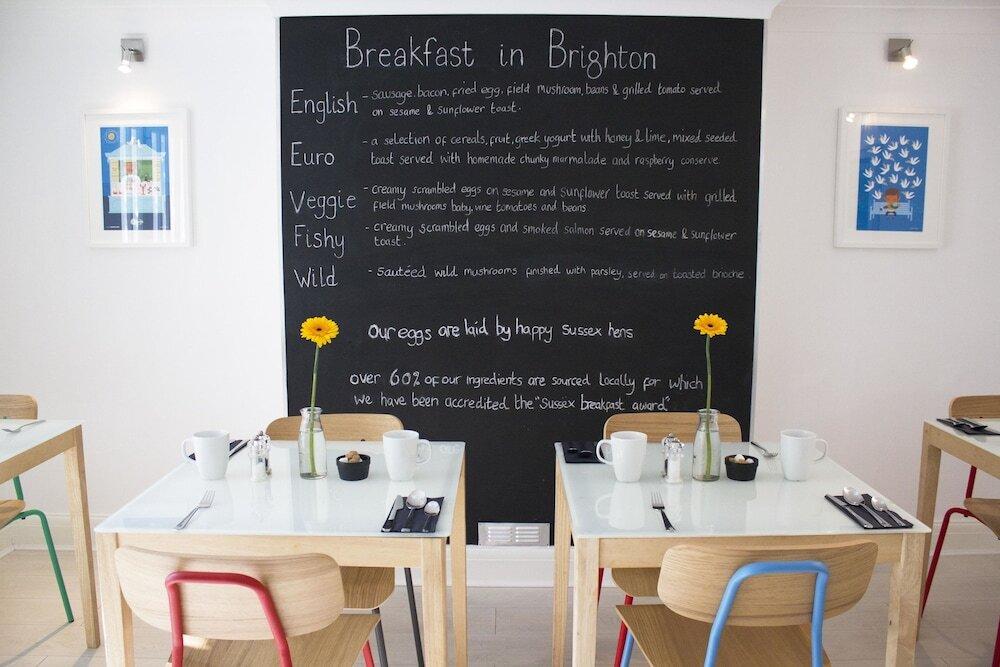 Breakfast in Brighton
English - sausage, bacon, fried egg, field mushroom, beans & grilled tomato served
on sesame & sunflower toast.
Euro - a selection of cereals, fruit, greek yogurt with honey & lime, mixed seeded
toast served with homemade chunky marmalade and raspberry conserve.
Veggie - creamy scrambled eggs on sesame and sunflower toast served with grilled
field mushrooms baby vine tomatoes and beans
Fishy - creamy scrambled eggs and smoked salmon served on sesame & sunflower
toast.
Wild - sautéed wild mushrooms finished with parsley, served on toasted brioche.
Our eggs are laid by happy Sussex hens
over 60% of our ingredients are sourced locally for which
we have been accredited the "Sussex breakfast award"